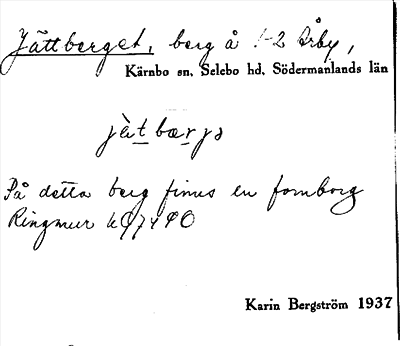 Jättberget, berg å 1-2 Årby,
Kärnbo sn, Selebo hd, Södermanlands län
På detta berg finns en fornborg
Ringmur
Karin Bergström 1937